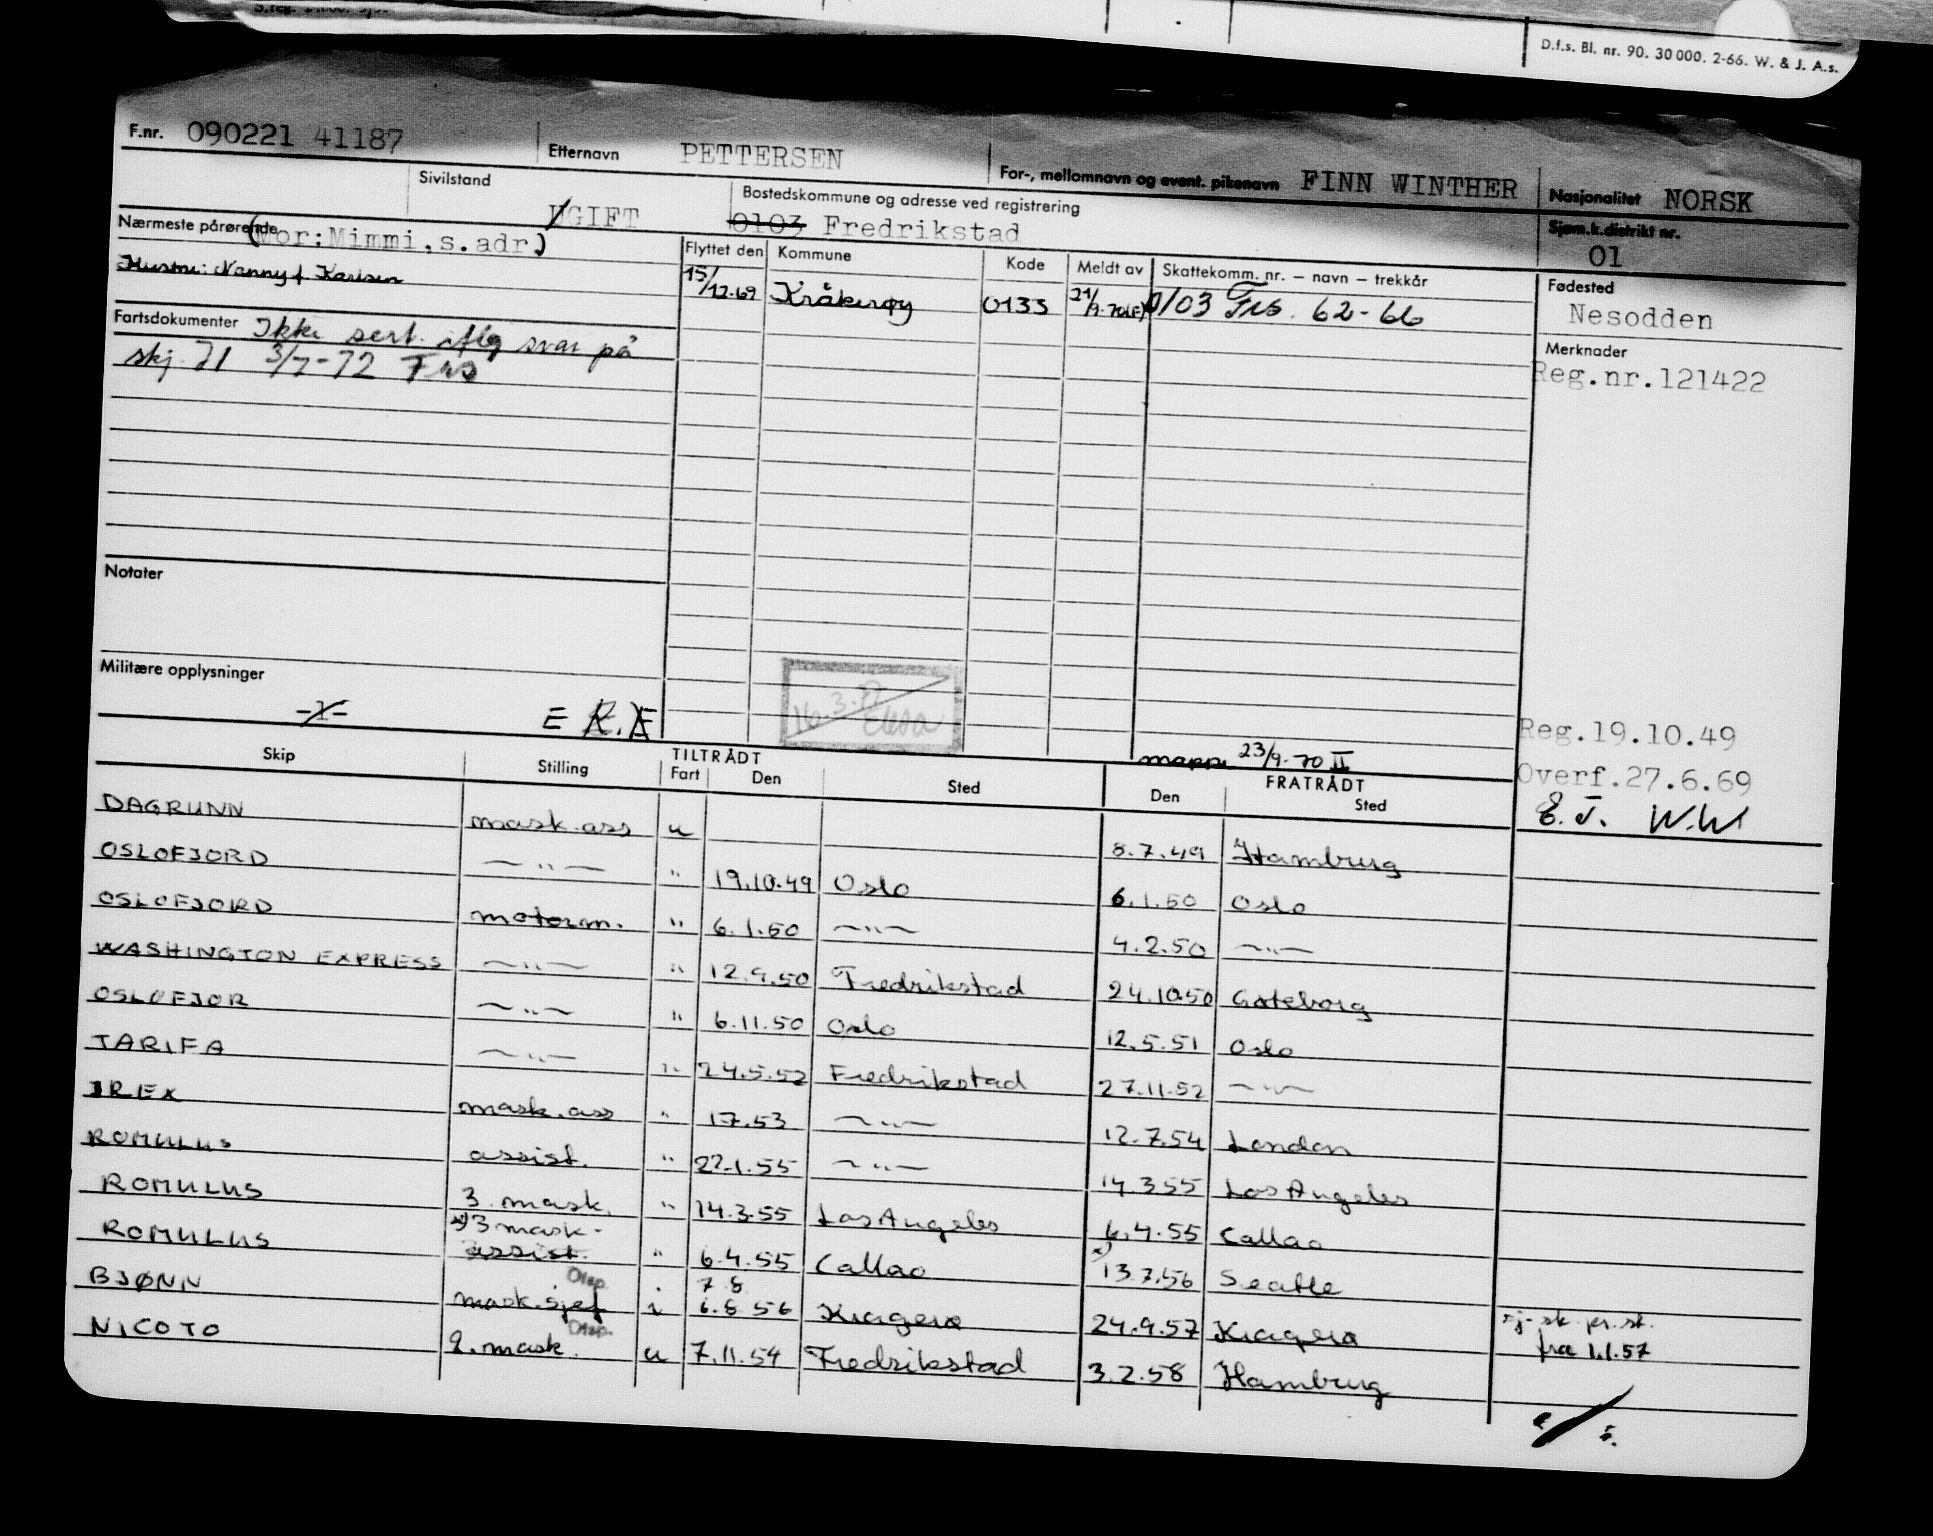 D.f.s. Bl. nr. 90. 30 000. 2-66. W. & J. A.s.
F.nr. 090221 41187 Etternavn PETTERSEN For-, mellomnavn og event. pikenavn FINN WINTHER Nasjonalitet NORSK
Sivilstand UGIFT Bostedskommune og adresse ved registrering 0103 Fredrikstad Sjøm.k.distrikt nr. 01
Nærmeste pårørende (Mor:Mimmi,s.adr.)
Hustru: Nanny f. Karlsen
Flyttet den Kommune Kode Meldt av Skattekomm. nr. – navn – trekkår
15/12-69 Kråkerøy 0133 21/9-70 0103 Frs. 62-66
Fødested
Nesodden
Fartsdokumenter Ikke sert. iflg svar på
skj. 71 3/7-72 Frs
Merknader
Reg.nr.121422
Notater
Militære opplysninger
-1- E R.F
16.3.77
Reg.19.10.49
Overf.27.6.69
E.T. W.W
mappe 23/9-70 II
Skip Stilling TILTRÅDT Fart Den Sted FRATRÅDT Den Sted
DAGRUNN mask.ass u 8.7.49 Hamburg
OSLOFJORD — " — " 19.10.49 Oslo 6.1.50 Oslo
OSLOFJORD motorm. " 6.1.50 — " — 4.2.50 — " —
WASHINGTON EXPRESS — " — " 12.9.50 Fredrikstad 24.10.50 Gøteborg
OSLOFJOR — " — " 6.11.50 Oslo 12.5.51 Oslo
TARIFA — " — " 24.5.52 Fredrikstad 27.11.52 — " —
IREX mask.ass " 1.7.53 — " — 12.7.54 London
ROMULUS assist. " 22.1.55 — " — 14.3.55 Los Angeles
ROMULUS 3. mask. " 14.3.55 Los Angeles 6.4.55 Callao
ROMULUS x) 3 mask. assist. " 6.4.55 Callao x) 13.7.56 Seattle
BJØNN mask.sjef Disp. i 7.8 6.8.56 Kragerø 24.9.57 Kragerø sj. sk. pr. st. fra 1.1.57
NICOTO 2. mask. Disp. u 7.11.57 Fredrikstad 3.2.58 Hamburg